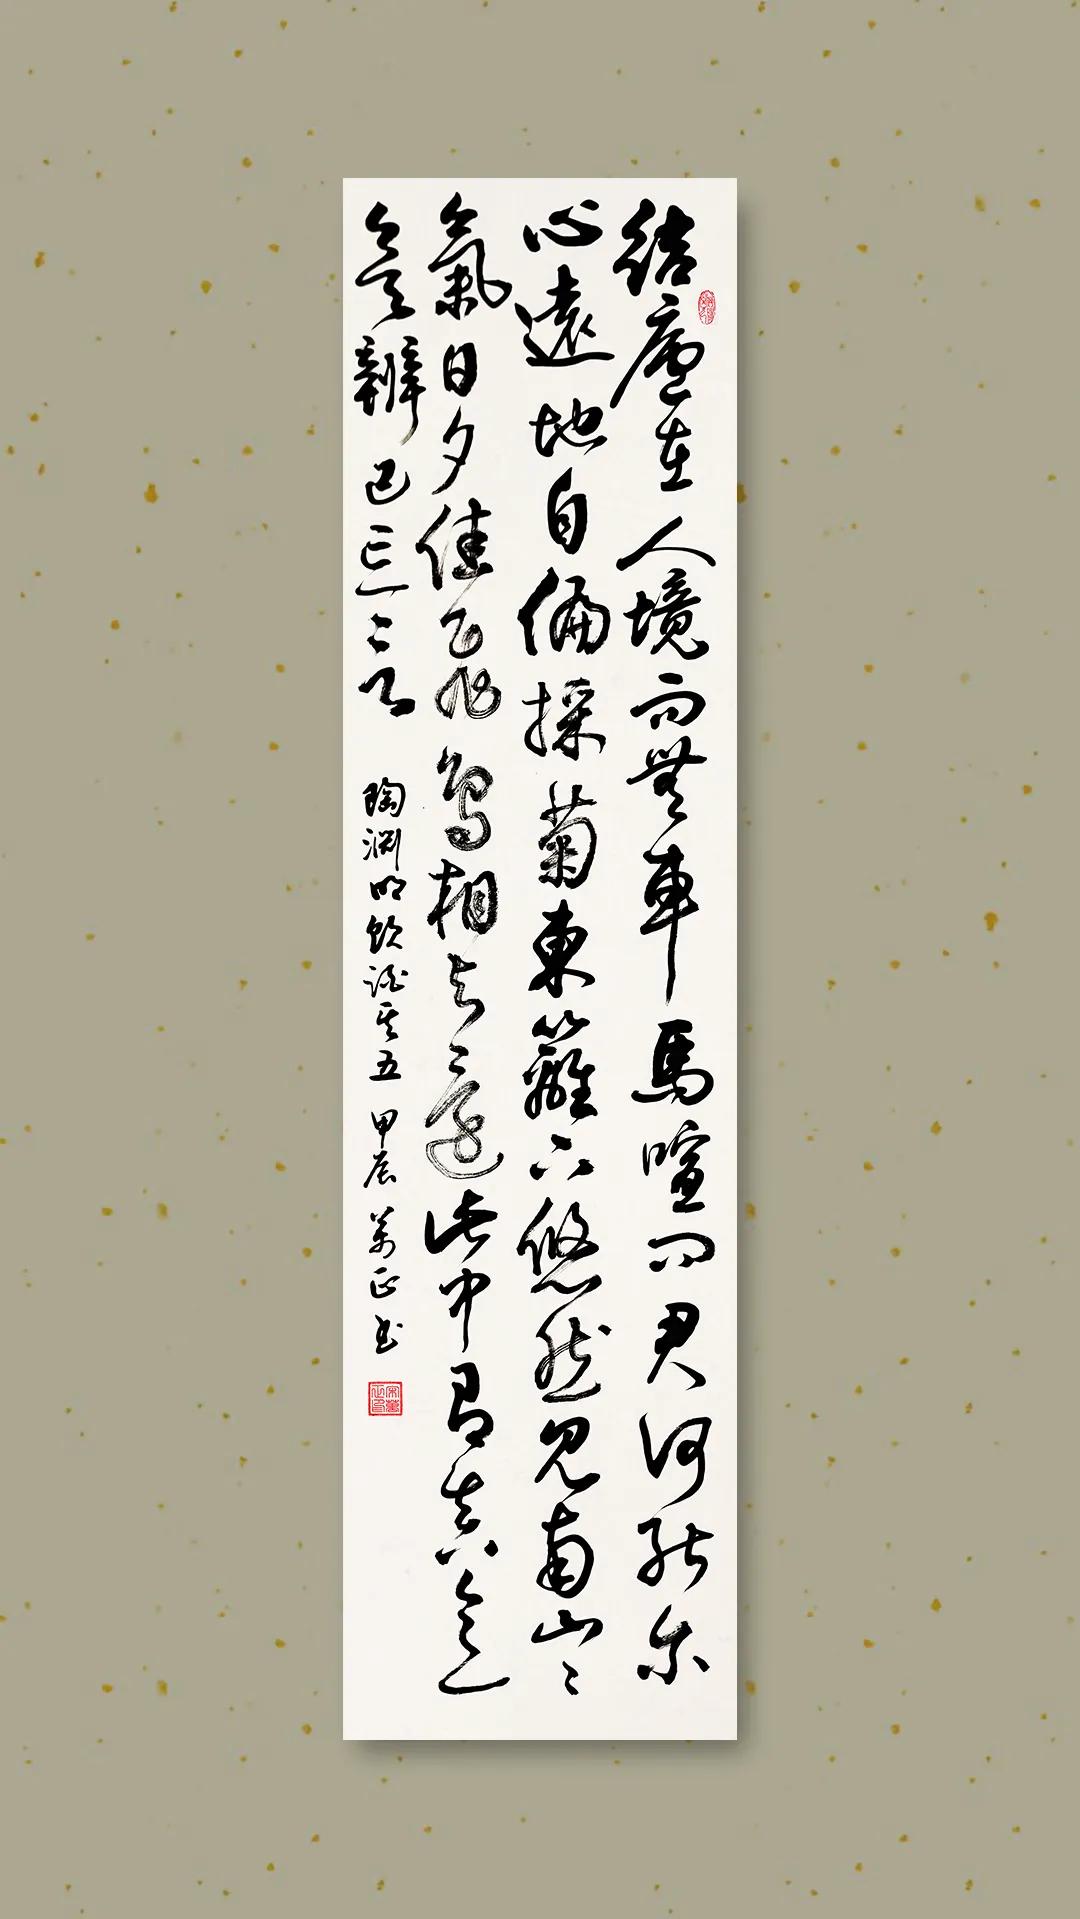 結廬在人境而無車馬喧問君何能尔
心遠地自偏採菊東籬下悠然見南山〻
氣日夕佳飛鳥相与還此中有真意
欲辨已忘言 陶淵明飲酒其五 甲辰 萬正书